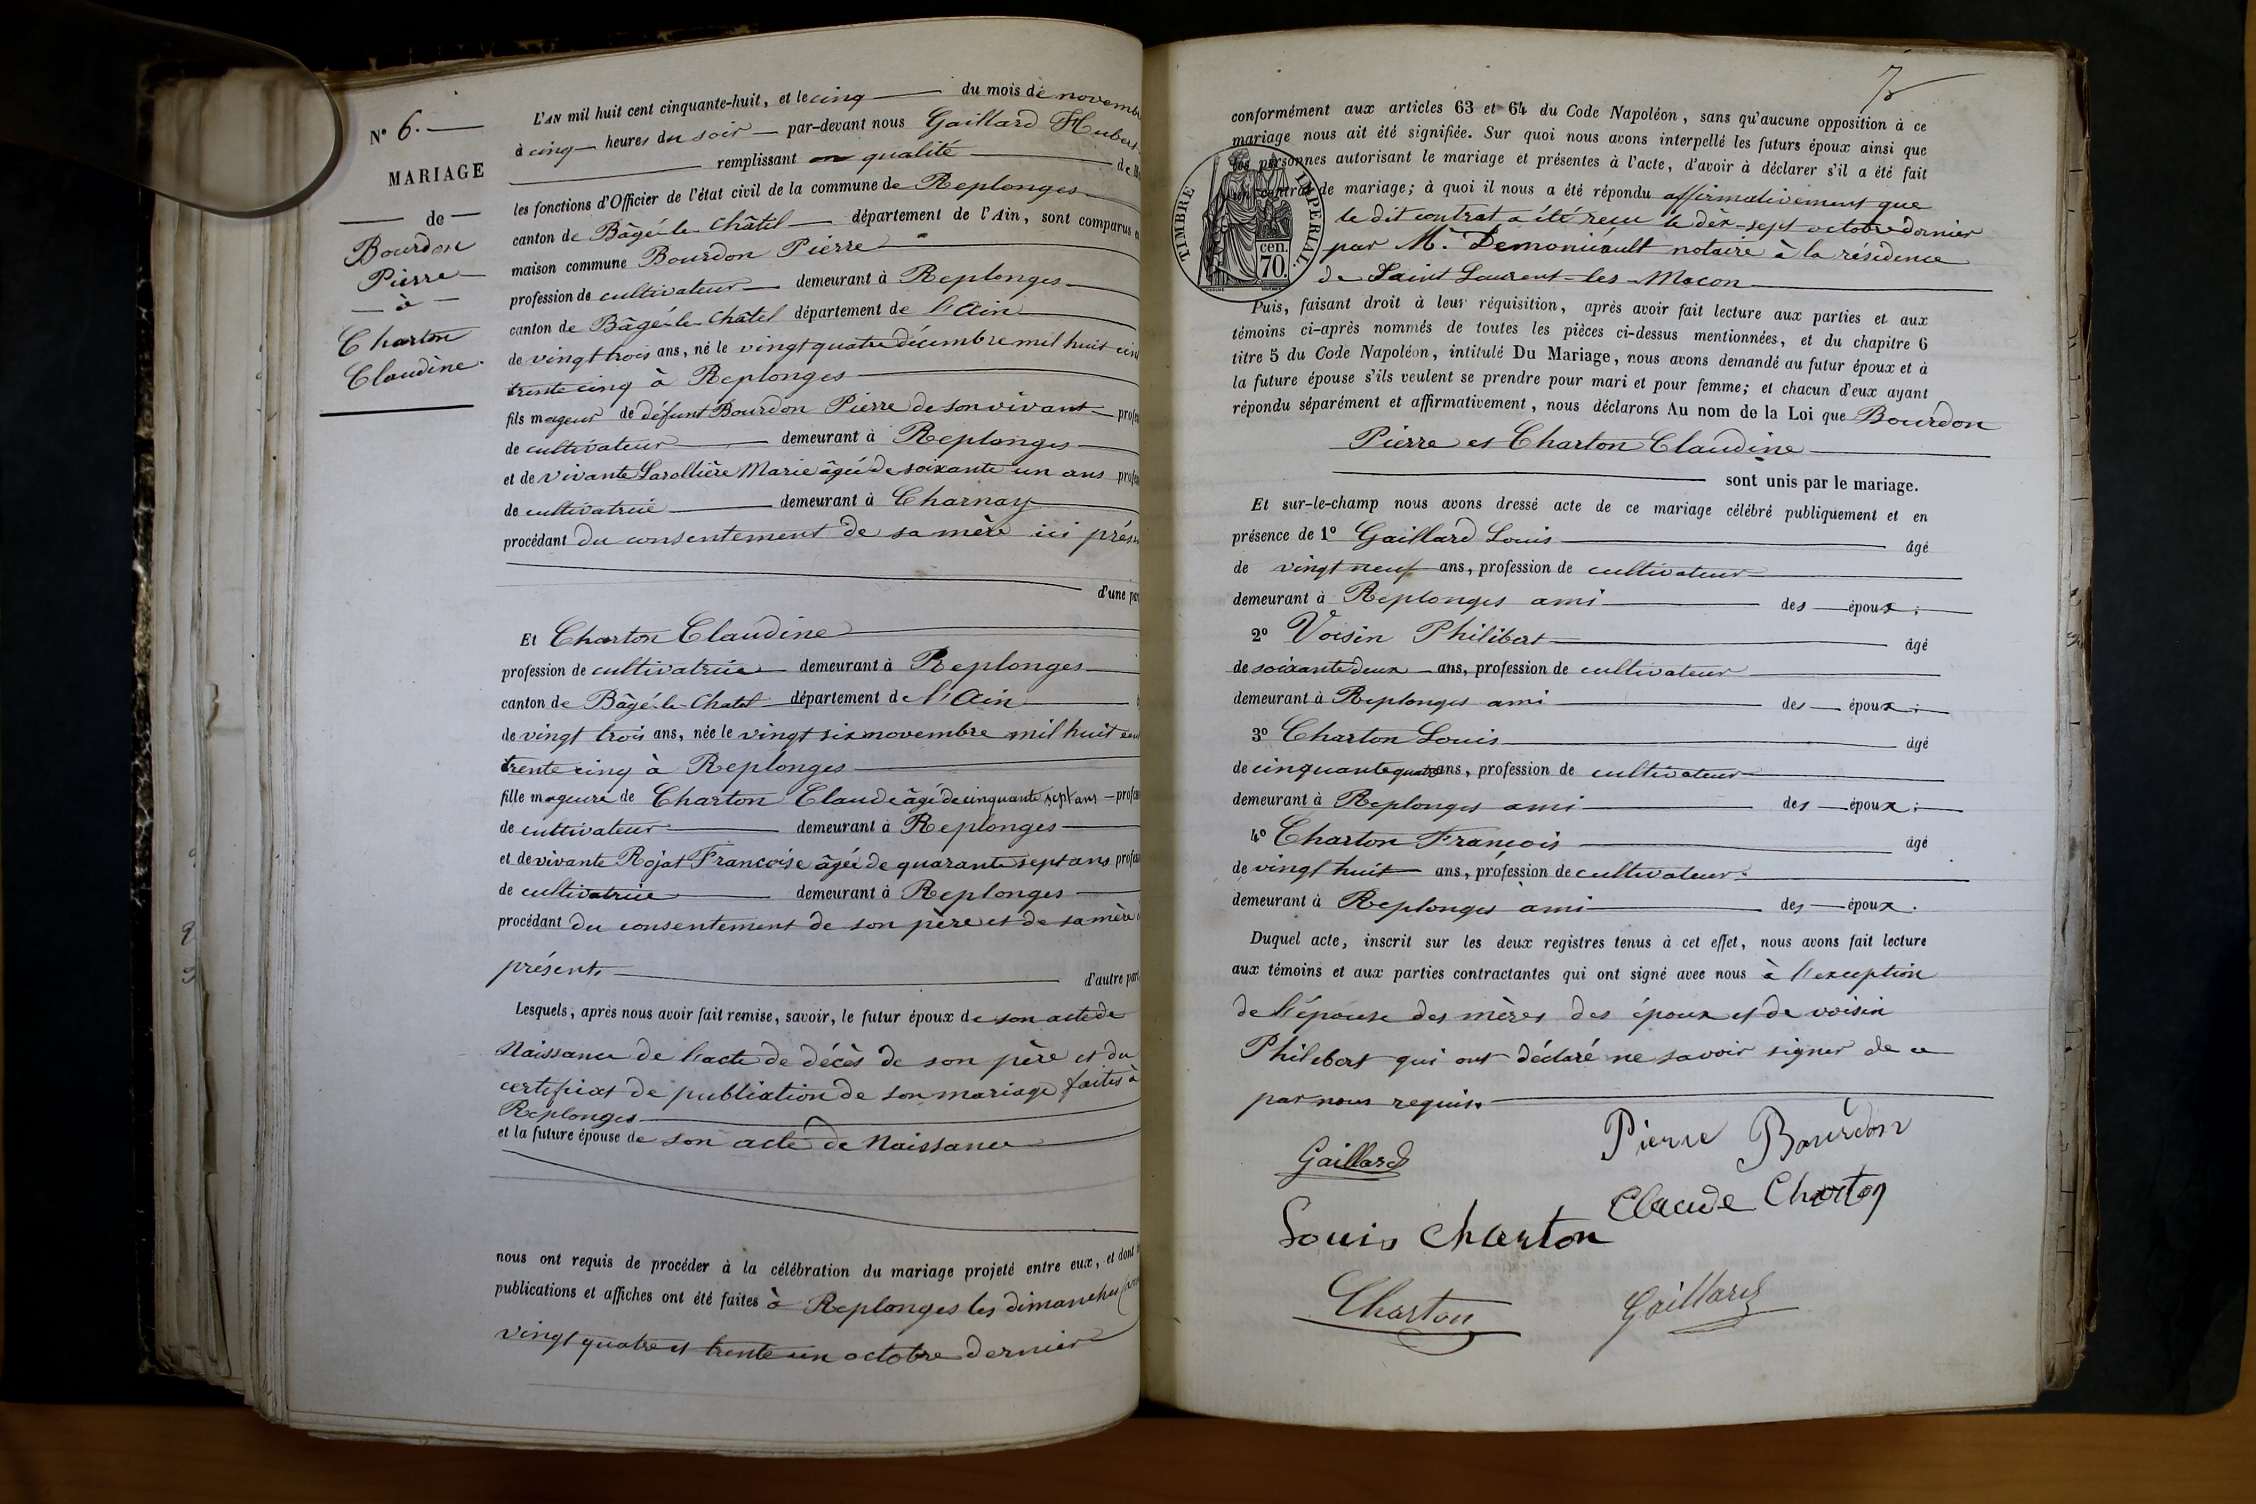 N° 6.
MARIAGE
de
Bourdon
Pierre
à
Charton
Claudine.
L'AN mil huit cent cinquante-huit, et le cinq du mois de novemb
à cinq heures du soir par-devant nous Gaillard Hubert
remplissant en qualité de
les fonctions d'Officier de l'état civil de la commune de Replonges
canton de Bâgé-le-Châtel département de l'Ain, sont comparus
maison commune Bourdon Pierre
profession de cultivateur demeurant à Replonges
canton de Bâgé-le-Châtel département de l'Ain
de vingt trois ans, né le vingt quatre décembre mil huit cent
trente cinq à Replonges
fils mageur de défunt Bourdon Pierre de son vivant profes
de cultivateur demeurant à Replonges
et de vivante Larollière Marie âgée de soixante un ans profes
de cultivatrice demeurant à Charnay
procédant du consentement de sa mère ici prés
d'une par
Et Charton Claudine
profession de cultivatrice demeurant à Replonges
canton de Bâgé-le-Chatel département de l'Ain
de vingt trois ans, née le vingt six novembre mil huit cent
trente cinq à Replonges
fille mageure de Charton Claude âgé de cinquante sept ans profes
de cultivateur demeurant à Replonges
et de vivante Rojat Françoise âgée de quarante sept ans profes
de cultivatrice demeurant à Replonges
procédant du consentement de son père et de sa mère
présents
d'autre part
Lesquels, après nous avoir fait remise, savoir, le futur époux de son acte de
Naissance de l'acte de décès de son père et du
certificat de publication de son mariage faites à
Replonges
et la future épouse de son acte de Naissance
nous ont requis de procéder à la célébration du mariage projeté entre eux, et dont
publications et affiches ont été faites à Replonges les dimanches
vingt quatre et trente un octobre dernier
75
conformément aux articles 63 et 64 du Code Napoléon, sans qu'aucune opposition à ce
mariage nous ait été signifiée. Sur quoi nous avons interpellé les futurs époux ainsi que
les personnes autorisant le mariage et présentes à l'acte, d'avoir à déclarer s'il a été fait
un contrat de mariage; à quoi il nous a été répondu affirmativement que
le dit contrat a été reçu le dix-sept octobre dernier
par Me. Demoniéault notaire à la résidence
de Saint Laurent-les-Macon
TIMBRE IMPERIAL.
cen.
70.
Puis, faisant droit à leur réquisition, après avoir fait lecture aux parties et aux
témoins ci-après nommés de toutes les pièces ci-dessus mentionnées, et du chapitre 6
titre 5 du Code Napoléon, intitulé Du Mariage, nous avons demandé au futur époux et à
la future épouse s'ils veulent se prendre pour mari et pour femme; et chacun d'eux ayant
répondu séparément et affirmativement, nous déclarons Au nom de la Loi que Bourdon
Pierre et Charton Claudine
sont unis par le mariage.
Et sur-le-champ nous avons dressé acte de ce mariage célébré publiquement et en
présence de 1° Gaillard Louis âgé
de vingt neuf ans, profession de cultivateur
demeurant à Replonges ami des époux;
2° Voisin Philibert âgé
de soixante deux ans, profession de cultivateur
demeurant à Replonges ami des époux;
3° Charton Louis âgé
de cinquante quatre ans, profession de cultivateur
demeurant à Replonges ami des époux;
4° Charton François âgé
de vingt huit ans, profession de cultivateur
demeurant à Replonges ami des époux.
Duquel acte, inscrit sur les deux registres tenus à cet effet, nous avons fait lecture
aux témoins et aux parties contractantes qui ont signé avec nous à l'exception
de l'épouse des mères des époux et de voisin
Philibert qui ont déclaré ne savoir signer de ce
par nous requis.
Gaillard
Pierre Bourdon
Claude Charton
Louis Charton
Charton
Gaillard